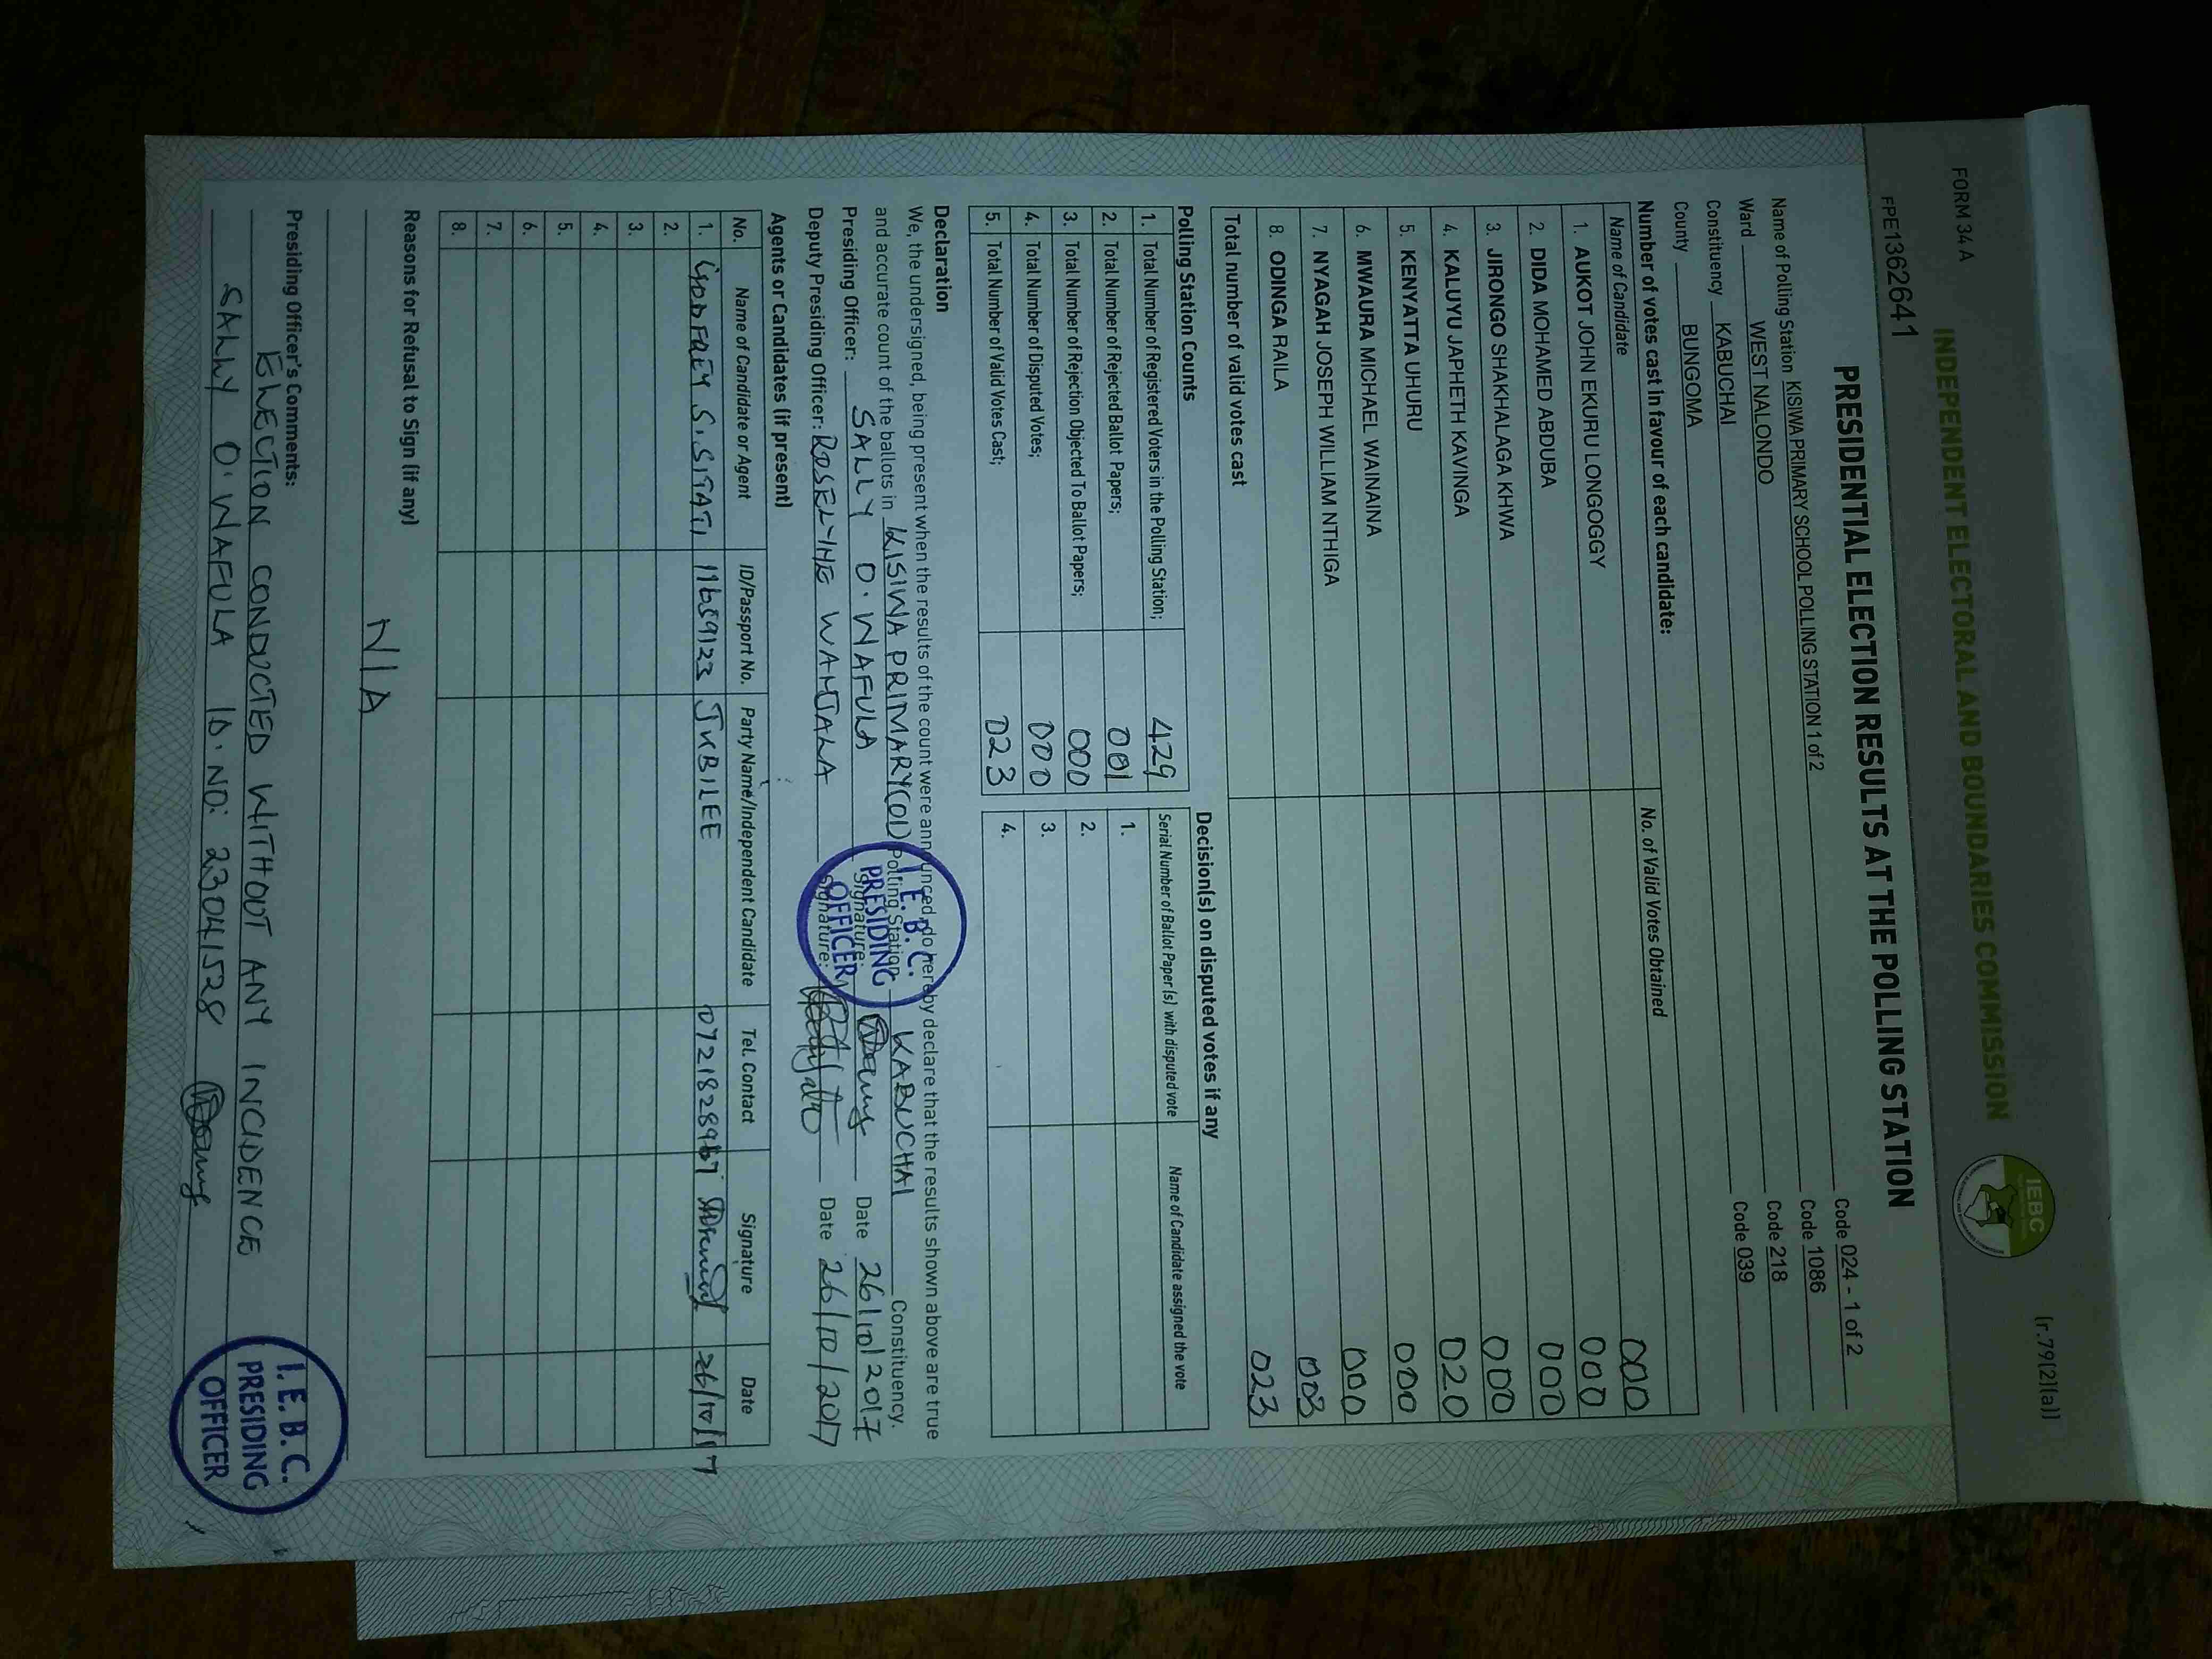 FORM 34A
(r.79(2)(a))
INDEPENDENT ELECTORAL AND BOUNDARIES COMMISSION
IEBC
FPE1362641
PRESIDENTIAL ELECTION RESULTS AT THE POLLING STATION
Name of Polling Station KISIWA PRIMARY SCHOOL POLLING STATION 1 of 2 Code 024 - 1 of 2
Ward WEST NALONDO Code 1086
Constituency KABUCHAI Code 218
County BUNGOMA Code 039
Number of votes cast in favour of each candidate:
Name of Candidate No. of Valid Votes Obtained
1. AUKOT JOHN EKURU LONGOGGY 000
2. DIDA MOHAMED ABDUBA 000
3. JIRONGO SHAKHALAGA KHWA 000
4. KALUYU JAPHETH KAVINGA 000
5. KENYATTA UHURU 020
6. MWAURA MICHAEL WAINAINA 000
7. NYAGAH JOSEPH WILLIAM NTHIGA 000
8. ODINGA RAILA 003
Total number of valid votes cast 023
Polling Station Counts
1. Total Number of Registered Voters in the Polling Station; 429
2. Total Number of Rejected Ballot Papers; 001
3. Total Number of Rejection Objected To Ballot Papers; 000
4. Total Number of Disputed Votes; 000
5. Total Number of Valid Votes Cast; 023
Decision(s) on disputed votes if any
Serial Number of Ballot Paper (s) with disputed vote Name of Candidate assigned the vote
1.
2.
3.
4.
Declaration
We, the undersigned, being present when the results of the count were announced, do hereby declare that the results shown above are true
and accurate count of the ballots in KISIWA PRIMARY (01) Polling Station KABUCHAI Constituency.
Presiding Officer: SALLY O. WAFULA Signature: Date 26/10/2017
Deputy Presiding Officer: ROSELYNE WANJALA Signature: Date 26/10/2017
I.E.B.C.
PRESIDING
OFFICER
Agents or Candidates (if present)
No. Name of Candidate or Agent ID/Passport No. Party Name/Independent Candidate Tel. Contact Signature Date
1. GODFREY S. SITATI 11659123 JUBILEE 26/10/17
2.
3.
4.
5.
6.
7.
8.
Reasons for Refusal to Sign (if any)
N/A
Presiding Officer's Comments:
ELECTION CONDUCTED WITHOUT ANY INCIDENCE
SALLY O. WAFULA ID. NO: 23041528
I.E.B.C.
PRESIDING
OFFICER